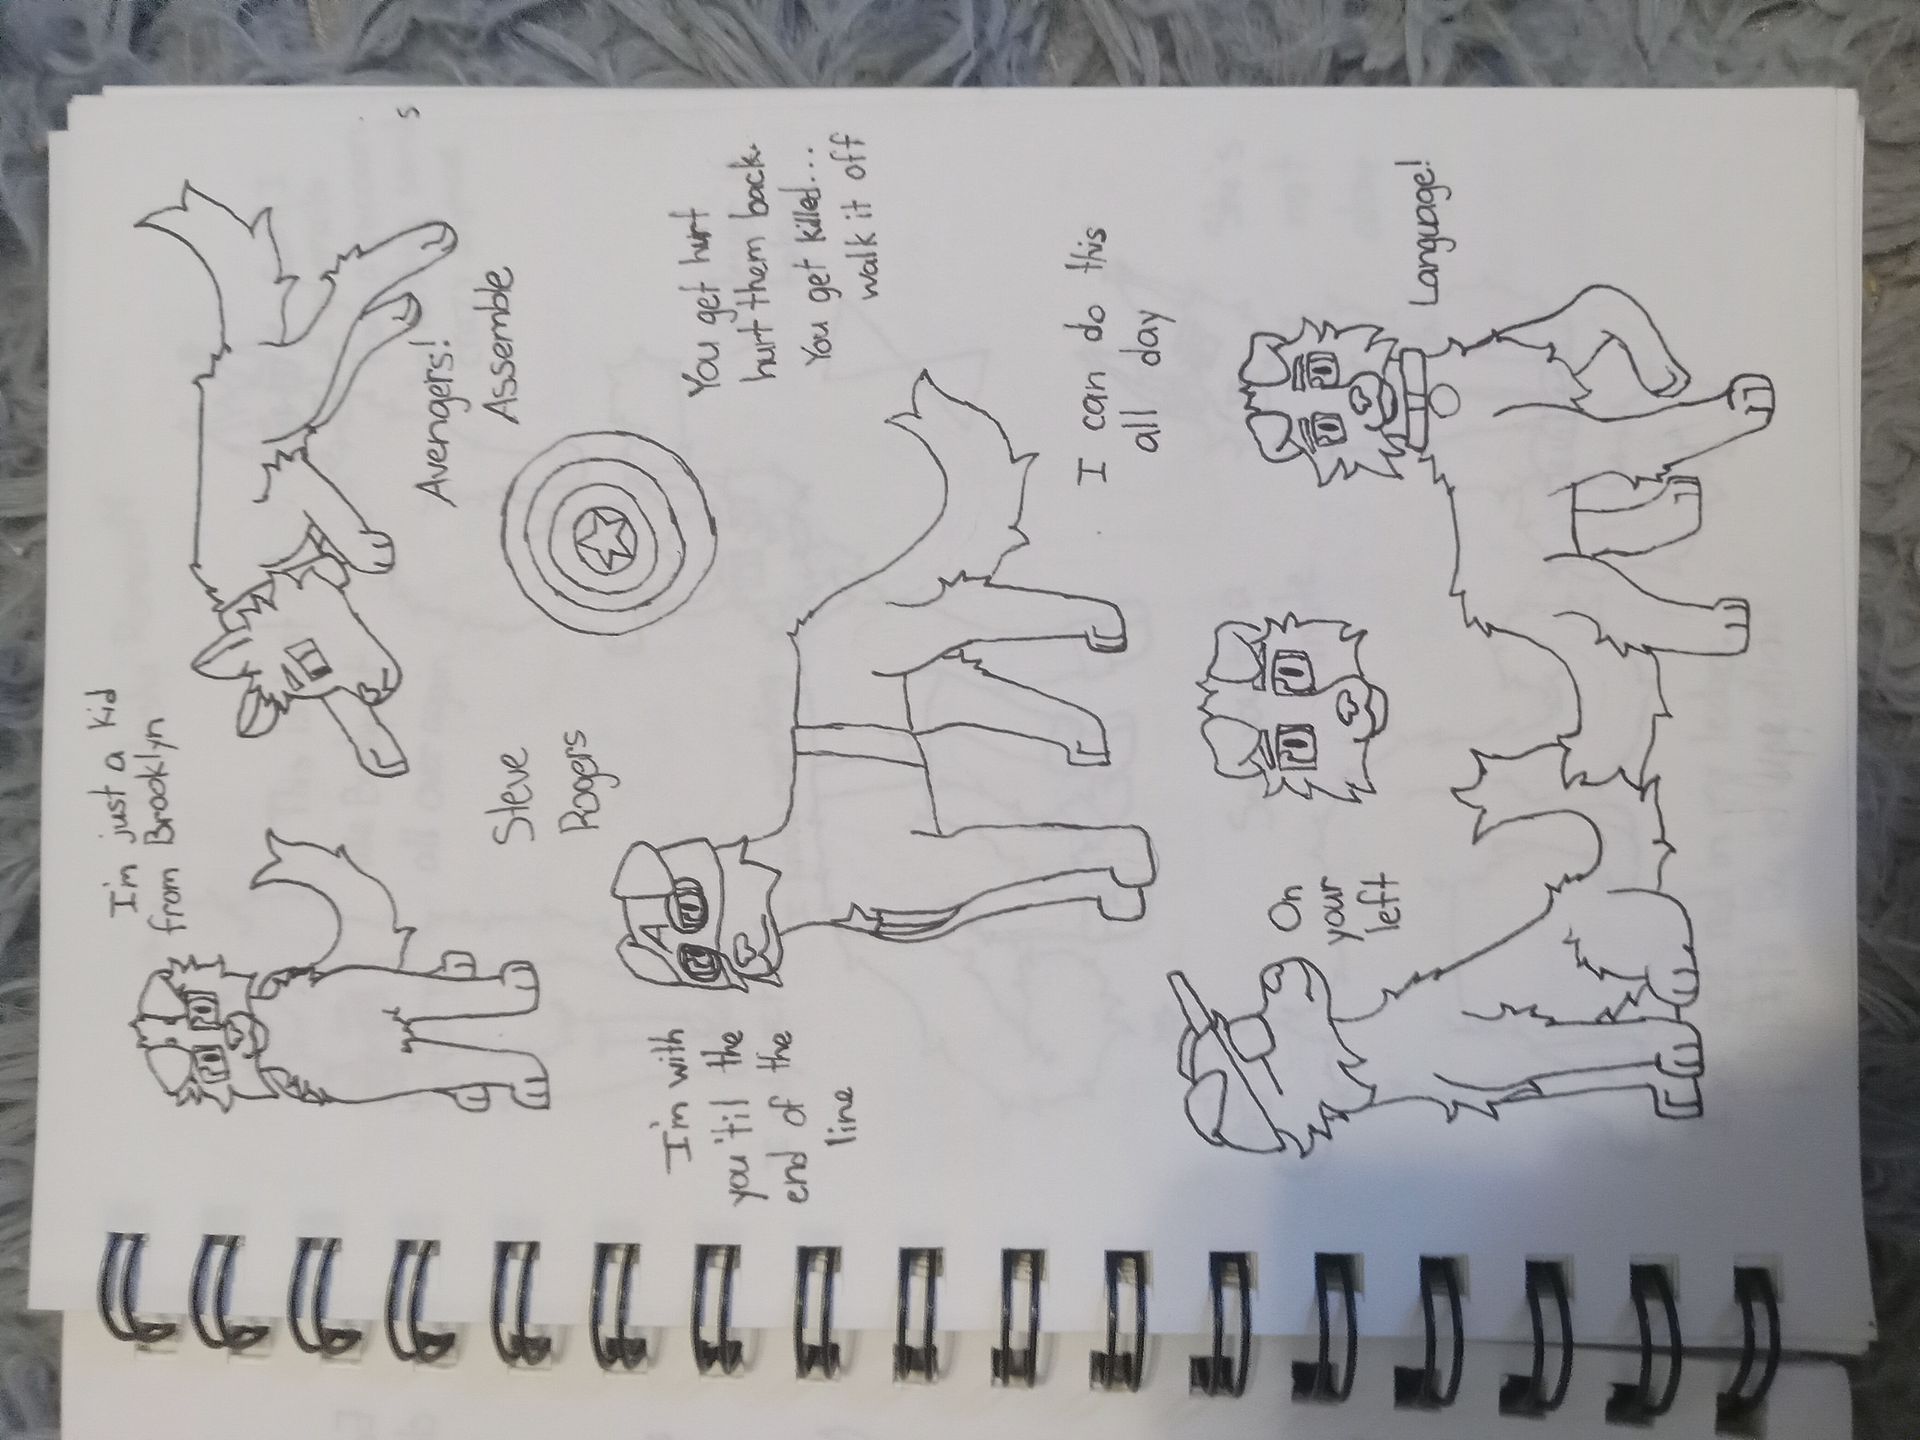 I'm just a kid
from Brooklyn
s
Avengers!
Assemble
Steve
Rogers
I'm with
you 'til the
end of the
line
A
You get hurt
hurt them back.
You get killed....
walk it off
I can do this
all day
On
your
left
Language!